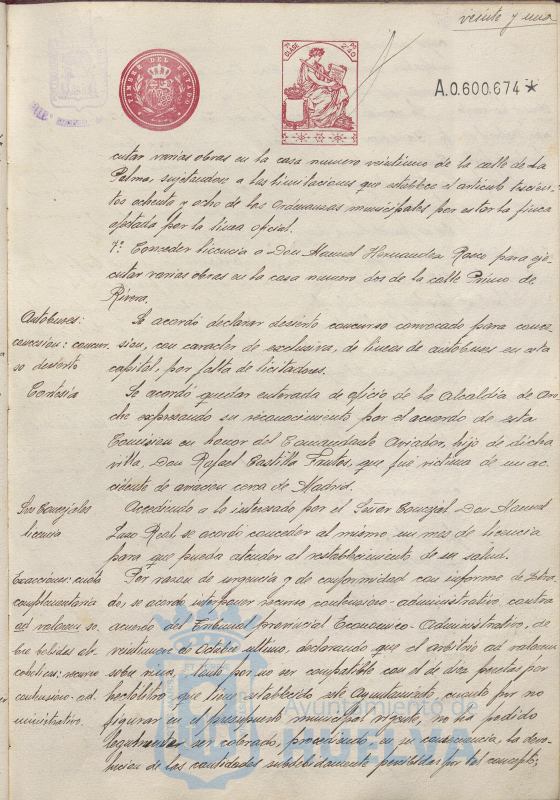 veinte y una
TIMBRE DEL ESTADO
7ª CLASE
2'40 Ps
A.0.600.674*
cutar varias obras en la casa numero veintiuno de la calle de La
Palma, sujetandose a las limitaciones que establece el articulo trescien-
tos ochenta y ocho de las Ordenanzas municipales por estar la finca
afectada por la linea oficial.
7º Conceder licencia a Don Manuel Hernandez Rasco para eje-
cutar varias obras en la casa numero dos de la calle Primo de
Rivera.
Autobuses:
concesion: concur-
so desierto
Se acordó declarar desierto concurso convocado para conce-
sion, con caracter de exclusiva, de lineas de autobuses en esta
capital, por falta de licitadores.
Cortesía
Se acordó quedar enterada de oficio de la Alcaldia de Aro-
che expresando su reconocimiento por el acuerdo de esta
Comision en honor del Comandante Aviador, hijo de dicha
villa, Don Rafael Castilla Frutos, que fué victima de un ac-
cidente de aviacion cerca de Madrid.
Sres Concejales
licencia
Accediendo a lo interesado por el Señor Concejal Don Manuel
Lazo Real se acordó conceder al mismo un mes de licencia
para que pueda atender al restablecimiento de su salud.
Exacciones: cuota
complementaria
ad valorem so-
bre bebidas al-
coholicas: recurso
contencioso-ad-
ministrativo.
Por razon de urgencia y de conformidad con informe de Letra-
do, se acordó interponer recurso contencioso-administrativo contra
acuerdo del Tribunal provincial Economico-Administrativo, de
veintinueve de Octubre ultimo, declarando que el arbitrio ad valorem
sobre vinos, tanto por no ser compatible con el de diez pesetas por
hectolitro que tiene establecido este Ayuntamiento, cuanto por no
figurar en el presupuesto municipal vigente, no ha podido
legalmente ser cobrado, procediendo, en su consecuencia, la devo-
lucion de las cantidades indebidamente percibidas por tal concepto;
Ayuntamiento de
HUELVA